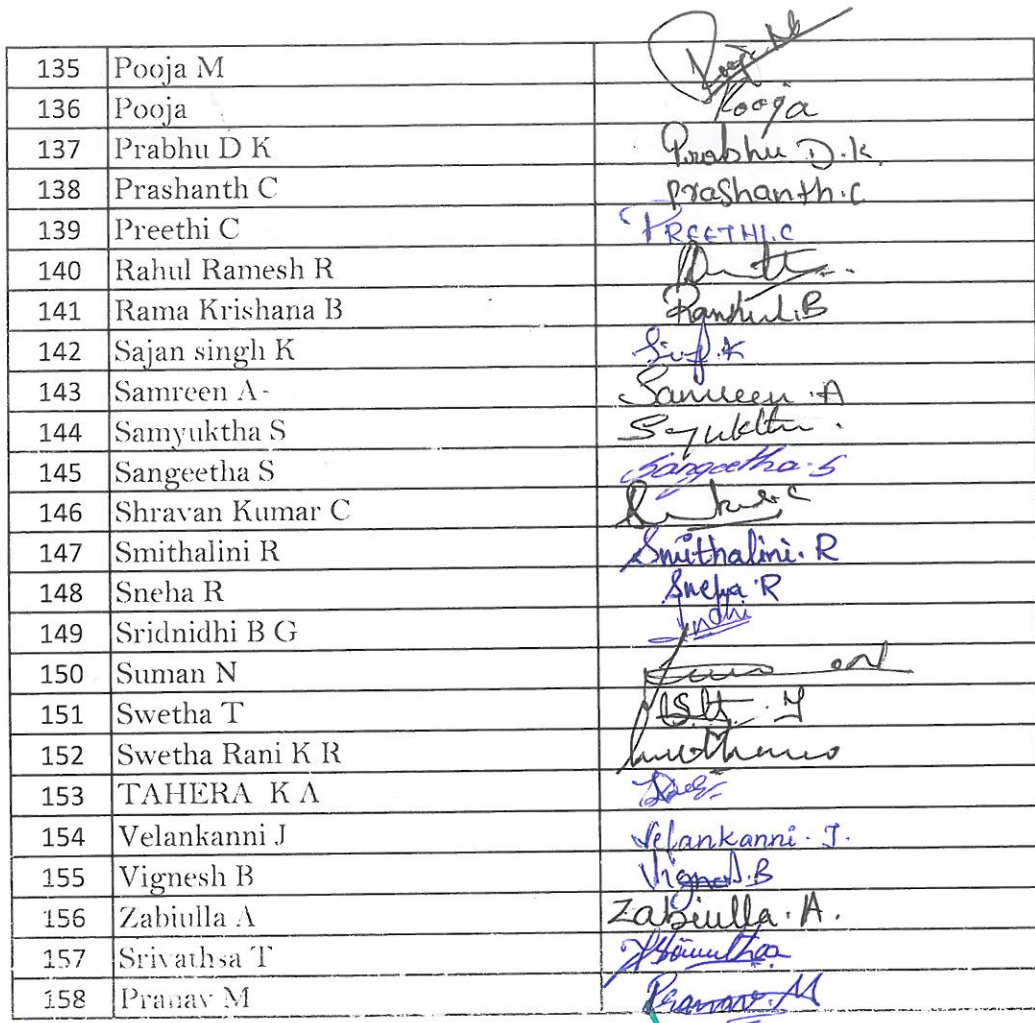 135 Pooja M Pooja.M
136 Pooja Pooja
137 Prabhu D K Prabhu D.K.
138 Prashanth C Prashanth.C
139 Preethi C PREETHI.C
140 Rahul Ramesh R
141 Rama Krishana B
142 Sajan singh K
143 Samreen A- Samreen .A
144 Samyuktha S
145 Sangeetha S Sangeetha.S
146 Shravan Kumar C
147 Smithalini R Smithalini.R
148 Sneha R Sneha R
149 Sridnidhi B G
150 Suman N
151 Swetha T
152 Swetha Rani K R
153 TAHERA K A
154 Velankanni J Velankanni.J.
155 Vignesh B
156 Zabiulla A Zabiulla.A.
157 Srivathsa T
158 Pranav M Pranav.M